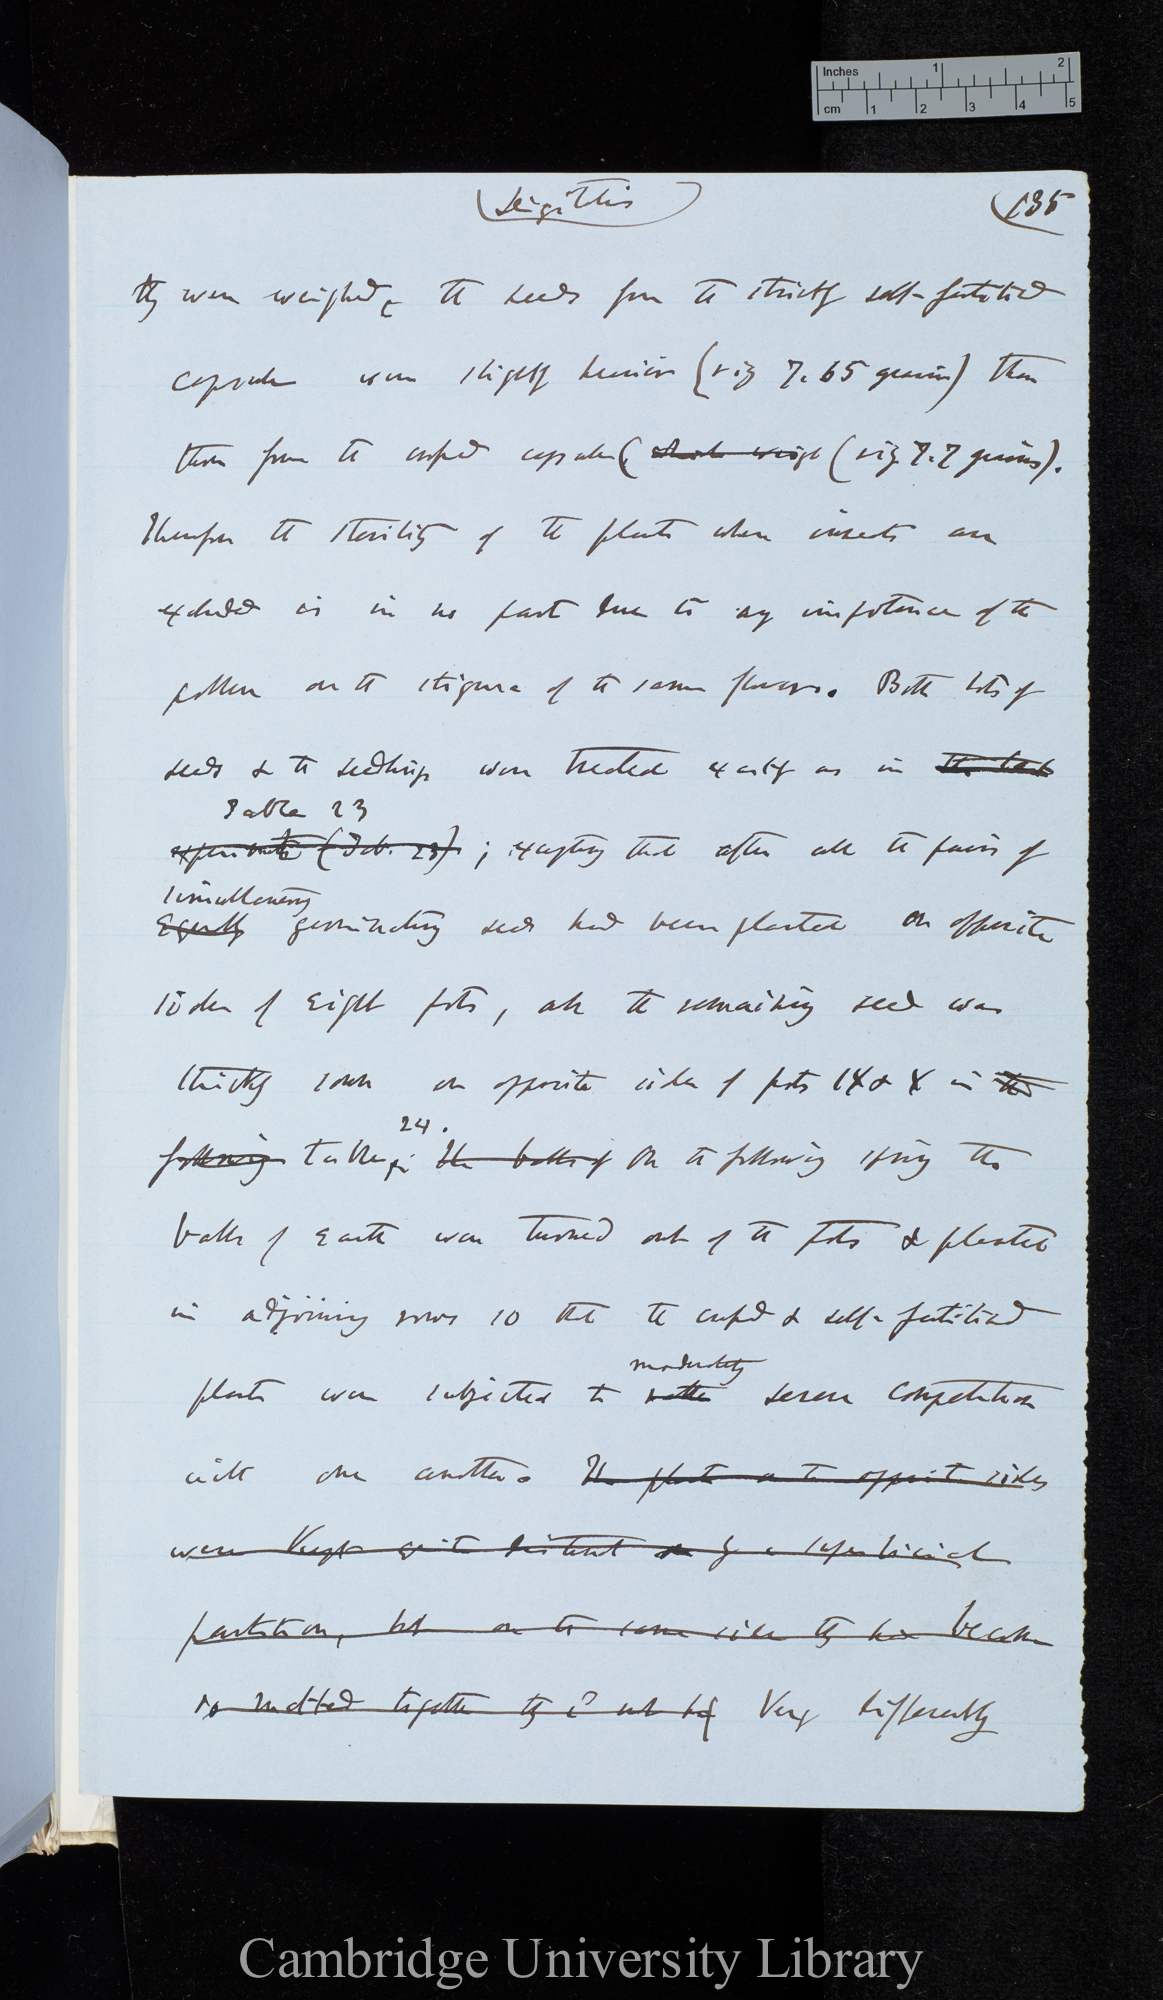 Inches 1 2
cm 1 2 3 4 5
(Digitalis)
(135
they were weighed, the seeds from the strictly self-fertilised
capsules were slightly heavier (viz 7.65 grains) than
those from the crossed capsules (which weigh (viz 7.7 grains).
Therefore the sterility of the plants when insects are
excluded is in no part due to any impotence of the
pollen on the stigma of the same flowers. Both lots of
seeds & the seedlings were treated exactly as in the last
Table 23
experiments (Tab. 23); excepting that after all the pairs of
simultaneously
Equally germinating seeds had been planted on opposite
sides of eight pots, all the remaining seed was
thickly sown on opposite sides of pots IX & X in the
24.
following table; The balls of On the following spring the
balls of earth were turned out of the pots & planted
in adjoining rows so that the crossed & self-fertilised
moderately
plants were subjected to rather severe competition
with one another. The plants on the opposite sides
were kept quite distinct by a superficial
partition, but on the same side they had become
so matted together they cd not be Very differently
Cambridge University Library